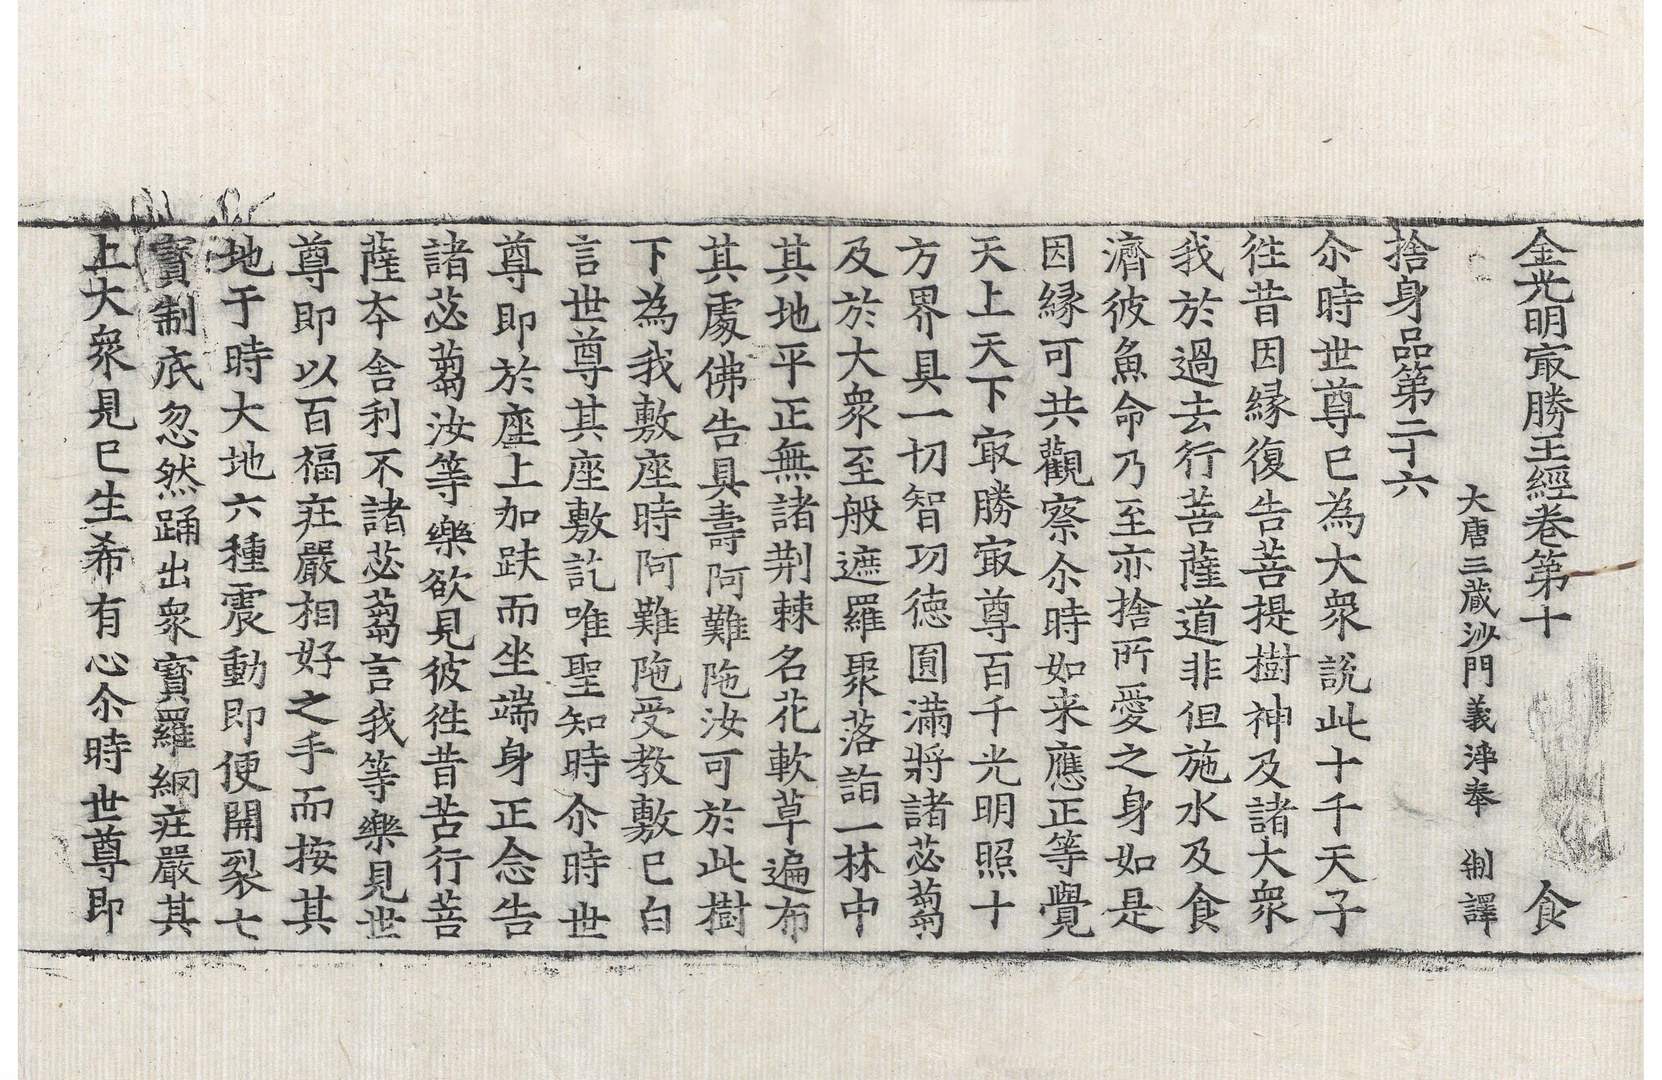 金光明㝡勝王經卷第十　食
大唐三藏沙門義淨奉　制譯
捨身品第二十六
尒時世尊已為大衆說此十千天子
徃昔因縁復告菩提樹神及諸大衆
我於過去行菩薩道非但施水及食
濟彼魚命乃至亦捨所愛之身如是
因縁可共觀察尒時如来應正等覺
天上天下㝡勝㝡尊百千光明照十
方界具一切智功徳圓滿將諸苾蒭
及於大衆至般遮羅聚落詣一林中
其地平正無諸荆棘名花軟草遍布
其處佛告具壽阿難陁汝可於此樹
下為我敷座時阿難陁受教敷已白
言世尊其座敷訖唯聖知時尒時世
尊即於座上加趺而坐端身正念告
諸苾蒭汝等樂欲見彼徃昔苦行菩
薩夲舍利不諸苾蒭言我等樂見世
尊即以百福莊嚴相好之手而按其
地于時大地六種震動即便開裂七
寳制底忽然踊出衆寳羅網莊嚴其
上大衆見已生希有心尒時世尊即